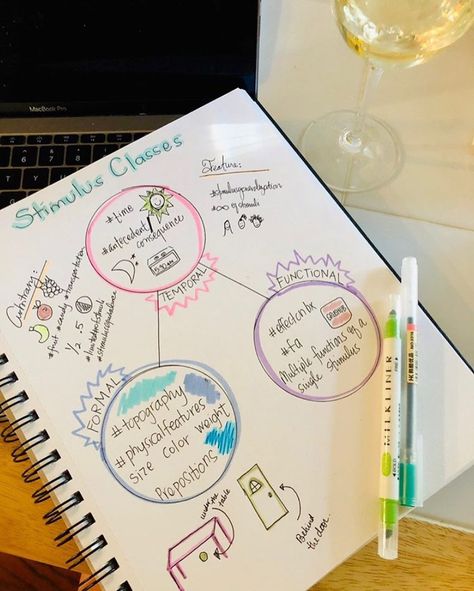 MacBook Pro
Stimulus Classes
Feature:
#stimulusgeneralization
#∞ of stimuli
#time
#antecedent/
consequence
TEMPORAL
Arbitrary:
#fruit #candy #transportation
1/2 .5
#limitedstimuli
#stimulusequivalence
FUNCTIONAL
#effectonbx
#fa
Multiple functions of a
single stimulus
FORMAL
#topography
#physicalfeatures
size color weight
Propositions
under the
table
Behind
the door
MILDLINER